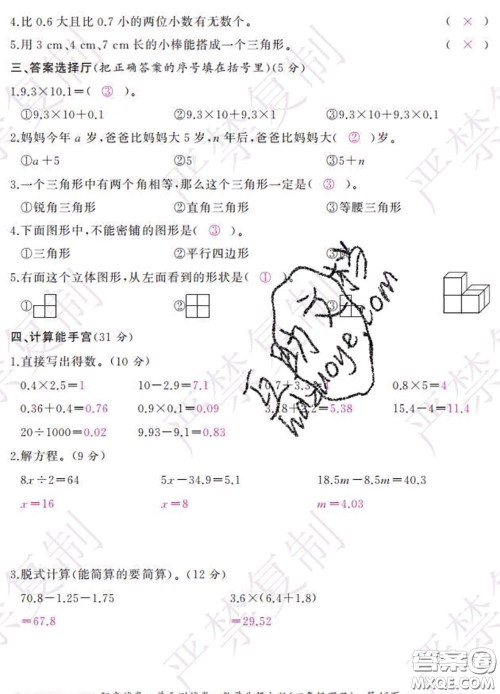 4.比 0.6 大且比 0.7 小的两位小数有无数个。 ( × )
5.用 3 cm、4 cm、7 cm 长的小棒能搭成一个三角形。 ( × )
三、答案选择厅(把正确答案的序号填在括号里)(5 分)
1.9.3×10.1=( ③ )。
①9.3×10+0.1 ②9.3×10+9.3 ③9.3×10+9.3×0.1
2.妈妈今年 a 岁,爸爸比妈妈大 5 岁,n 年后,爸爸比妈妈大( ② )岁。
①a+5 ②5 ③5+n
3.一个三角形中有两个角相等,那么这个三角形一定是( ③ )。
①锐角三角形 ②直角三角形 ③等腰三角形
4.下面图形中,不能密铺的图形是( ③ )。
①三角形 ②平行四边形
5.右面这个立体图形,从左面看到的形状是( ① )。
① ② ③
四、计算能手宫(31 分)
1.直接写出得数。(10 分)
0.4×2.5=1 10-2.9=7.1 0.8×5=4
0.36+0.4=0.76 0.9×0.1=0.09 =5.38 15.4-4=11.4
20÷1000=0.02 9.93-9.1=0.83
2.解方程。(9 分)
8x÷2=64 5x-34.9=5.1 18.5m-8.5m=40.3
x=16 x=8 m=4.03
3.脱式计算(能简算的要简算)。(12 分)
70.8-1.25-1.75 3.6×(6.4+1.8)
=67.8 =29.52
严禁复制
互助文档
hdzuoye.com
答案圈
MXQE.COM